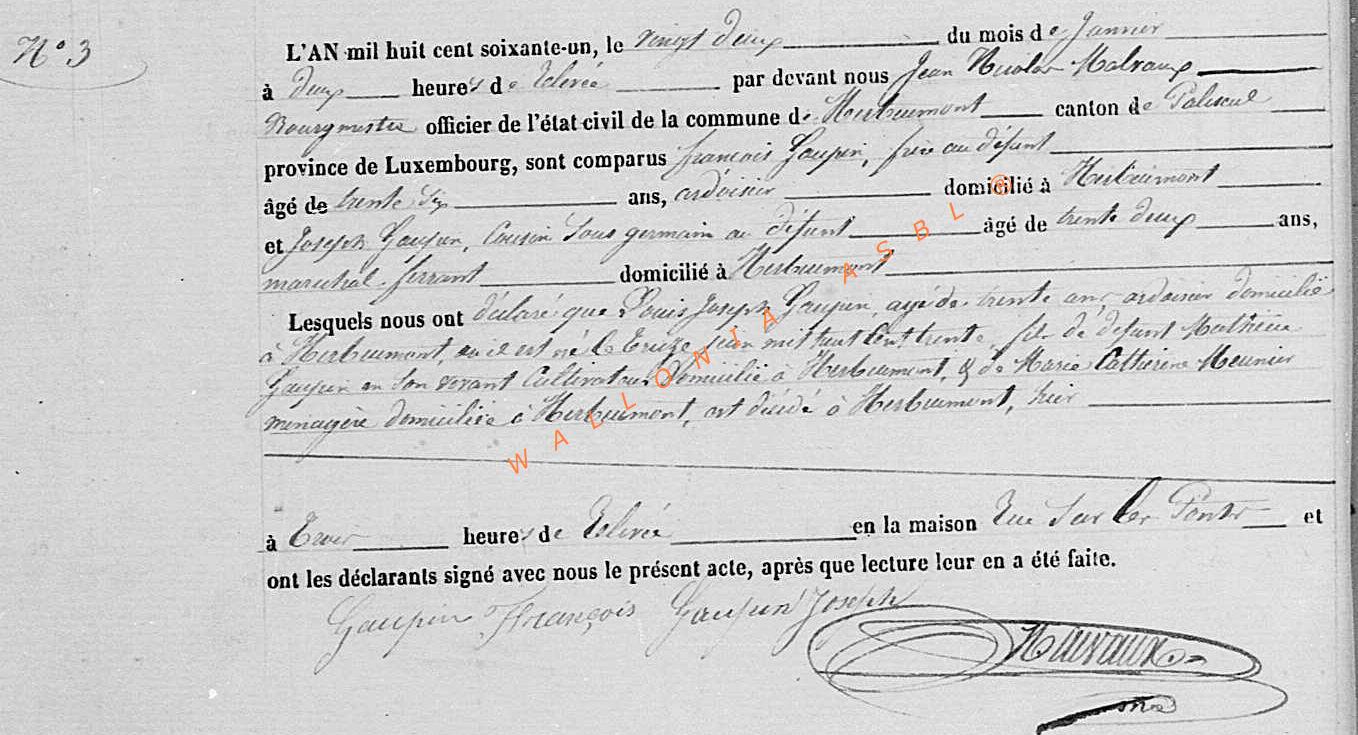 N° 3
L'AN mil huit cent soixante-un, le vingt deux du mois de Janvier
à deux heures de relevée par devant nous Jean Nicolas Malvaux
Bourgmestre officier de l'état civil de la commune de Herbeumont canton de Paliseul
province de Luxembourg, sont comparus françois Gaupin, frère au défunt
âgé de trente six ans, ardoisier domicilié à Herbeumont
et Joseph Gaupin, Cousin Sous germain au défunt âgé de trente deux ans,
marechal ferrant domicilié à Herbeumont
Lesquels nous ont déclaré que Louis Joseph Gaupin, agé de trente ans ardoisier domicilié
à Herbeumont, où il est né le treize juin mil huit Cent trente, fils de défunt Mathieu
Gaupin en Son vivant Cultivateur domicilié à Herbeumont, & de Marie Catherine Meunier
ménagère domiciliée à Herbeumont, est décédé à Herbeumont, hier
à trois heures de relevée en la maison Rue Sur les Ponts et
ont les déclarants signé avec nous le présent acte, après que lecture leur en a été faite.
Gaupin François Gaupin Joseph
Malvaux
WALLONIA ASBL ®